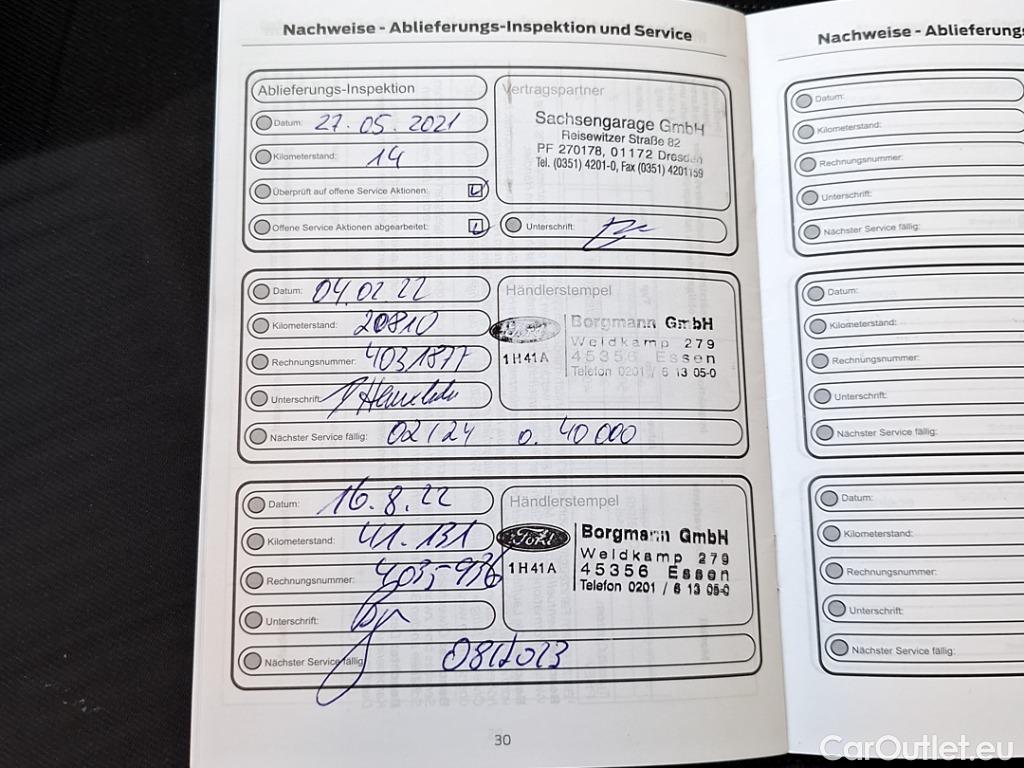 Nachweise - Ablieferungs-Inspektion und Service
Ablieferungs-Inspektion
Datum: 27.05.2021
Kilometerstand: 14
Überprüft auf offene Service Aktionen:
Offene Service Aktionen abgearbeitet:
Vertragspartner
Sachsengarage GmbH
Reisewitzer Straße 82
PF 270178, 01172 Dresden
Tel. (0351) 4201-0, Fax (0351) 4201159
Unterschrift:
Datum: 04.02.22
Kilometerstand: 20810
Rechnungsnummer: 4031877
Unterschrift:
Nächster Service fällig: 02/24 o. 40000
Händlerstempel
Borgmann GmbH
Weldkamp 279
1H41A 45356 Essen
Telefon 0201 / 6 13 05-0
Datum: 16.8.22
Kilometerstand: 41.131
Rechnungsnummer: 4035936
Unterschrift:
Nächster Service fällig: 08/2023
Händlerstempel
Ford Borgmann GmbH
Weldkamp 279
1H41A 45356 Essen
Telefon 0201 / 6 13 05-0
30
Nachweise - Ablieferungs
Datum:
Kilometerstand:
Rechnungsnummer:
Unterschrift:
Nächster Service fällig:
Datum:
Kilometerstand:
Rechnungsnummer:
Unterschrift:
Nächster Service fällig:
Datum:
Kilometerstand:
Rechnungsnummer:
Unterschrift:
Nächster Service fällig:
CarOutlet.eu